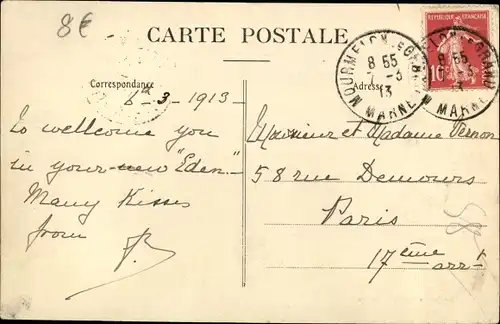 8€
CARTE POSTALE
Correspondance
Adresse
MOURMELON-LE-GRAND
8 55
7 - 3
13
MARNE
8 55
13
MARNE
RÉPUBLIQUE FRANÇAISE
10
6th 3 - 1913
to wellcome you
in your new "Eden."
Many Kisses
from
Monsieur et Madame Vernon
58 rue Demours
Paris
17ème arrt
58